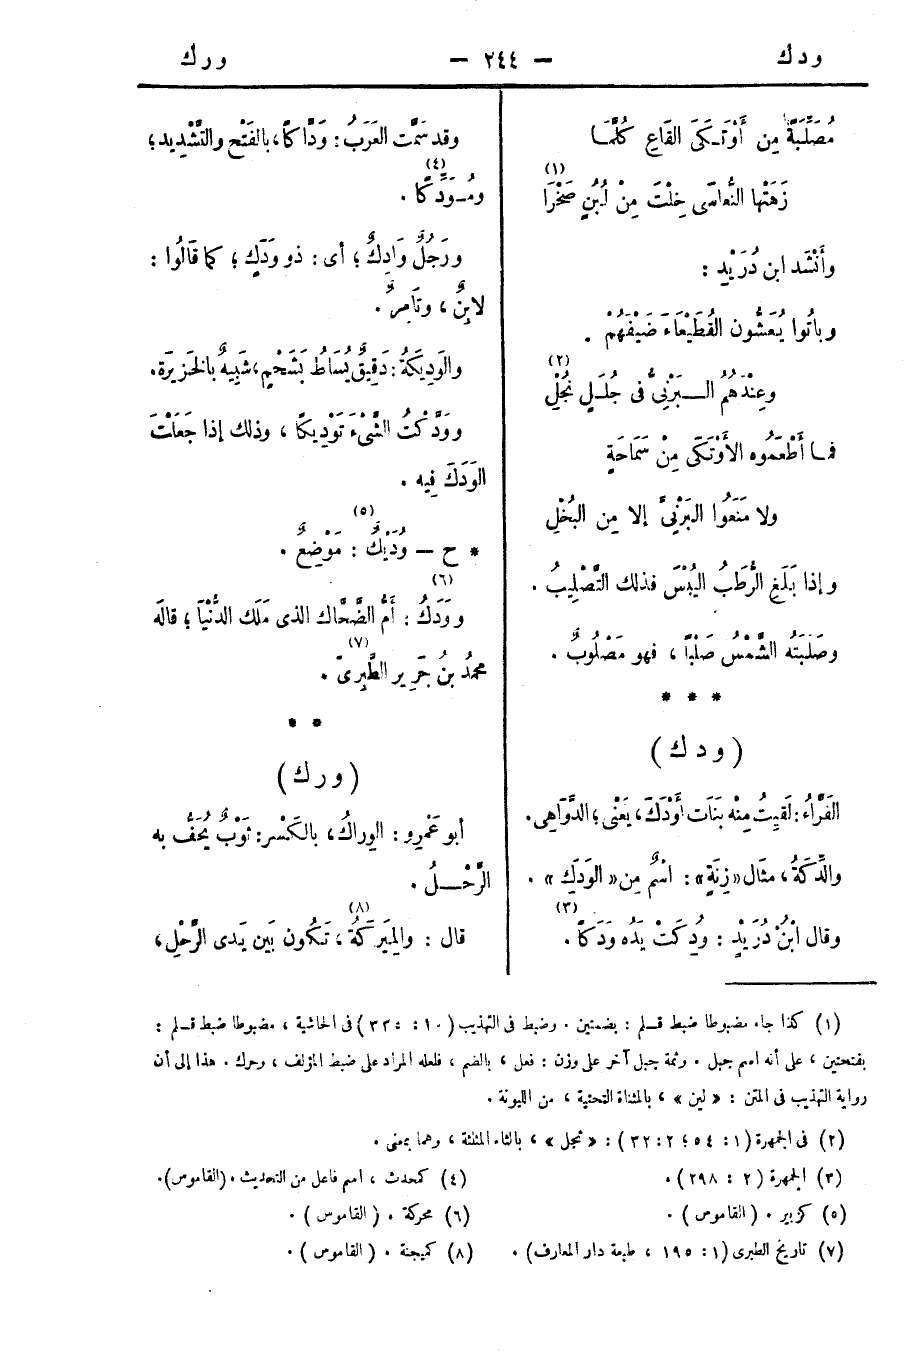 ودك — ٢٤٤ — ورك
مُصَلِّبَةً مِن أَوْتَكَى القَاعِ كُلَّمَا
زَهَتْها النُّعامَى خِلْتَ مِنْ لُبُنٍ صَخْرَا (١)
وأَنْشَد ابن دُرَيْدٍ :
وباتُوا يُعَشُّون القُطَيْعَاءَ ضَيْفَهُمْ .
وعِنْدَهُمُ البَرْنِىُّ فى جُلَلٍ نُجْلِ (٢)
فما أَطْعَمُوه الأَوْتَكَى مِنْ سَمَاحَةٍ
ولا مَنَعُوا البَرْنِىَّ إلا مِن البُخْلِ
وإذا بَلَغ الرُّطَبُ اليُبْسَ فذلك التَّصْلِيبُ .
وصَلَبَتْه الشَّمْسُ صَلْبًا ، فهو مَصْلُوبٌ .
* * *
( ودك )
الفَرّاءُ : لَقِيتُ مِنْه بَنَات أَوْدَكَ ، يَعْنِى ؛ الدَّوَاهِى .
والدِّكَةُ ، مثال « زِنَةٍ » : اسْمٌ مِن « الوَدَكِ » .
وقال ابْنُ دُرَيْدٍ : وَدِكَتْ يَدُه وَدَكًا (٣) .
وقد سَمَّت العَرَبُ : وَدَّاكًا ، بالفَتْح والتَّشْدِيد ؛
ومُوَدِّكًا (٤) .
ورَجُلٌ وَادِكٌ ؛ أى : ذو وَدَكٍ ؛ كما قَالُوا :
لابِنٌ ، وتَامِرٌ .
والوَدِيكَةُ : دَقِيقٌ يُسَاطُ بشَحْمٍ ، شَبِيهٌ بالخَزِيرَة .
ووَدَّكْتُ الشَّىْءَ تَوْدِيكًا ، وذلك إذا جَعَلْتَ
الوَدَكَ فِيه .
* ح — وُدَيْكٌ (٥) : مَوْضِعٌ .
ووَدَكُ (٦) : أُمُّ الضَّحَّاك الذى مَلَك الدُّنْيَا ؛ قالَه
محمدُ بنُ جَرِير الطَّبَرِىّ (٧) .
* *
( ورك )
أبو عَمْرٍو : الوِراكُ ، بالكَسْر : ثَوْبٌ يُحَفُّ به
الرَّحْلُ .
قال : والمِيرَكَةُ (٨) ، تَكُون بَين يَدى الرَّحْلِ ،
(١) كذا جاء مضبوطا ضبط قلم : بضمتين . وضبط فى التهذيب (١٠ : ٣٣٥) فى الحاشية ، مضبوطا ضبط قلم :
بفتحتين ، على أنه اسم جبل . وثمة جبل آخر على وزن : فعل ، بالضم ، فلعله المراد على ضبط المؤلف ، وحرك . هذا إلى أن
رواية التهذيب فى المتن : « لين » ، بالمثناة التحتية ، من الليونة .
(٢) فى الجمهرة (١ : ٥٤ ؛ ٢ : ٣٢) : « ثجل » ، بالثاء المثلثة ، وهما بمعنى .
(٣) الجمهرة (٢ : ٢٩٨) . (٤) كمحدث ، اسم فاعل من التحديث . (القاموس) .
(٥) كزبير . ( القاموس ) . (٦) محركة . ( القاموس ) .
(٧) تاريخ الطبرى (١ : ١٩٥ ، طبعة دار المعارف) . (٨) كميجنة . ( القاموس ) .